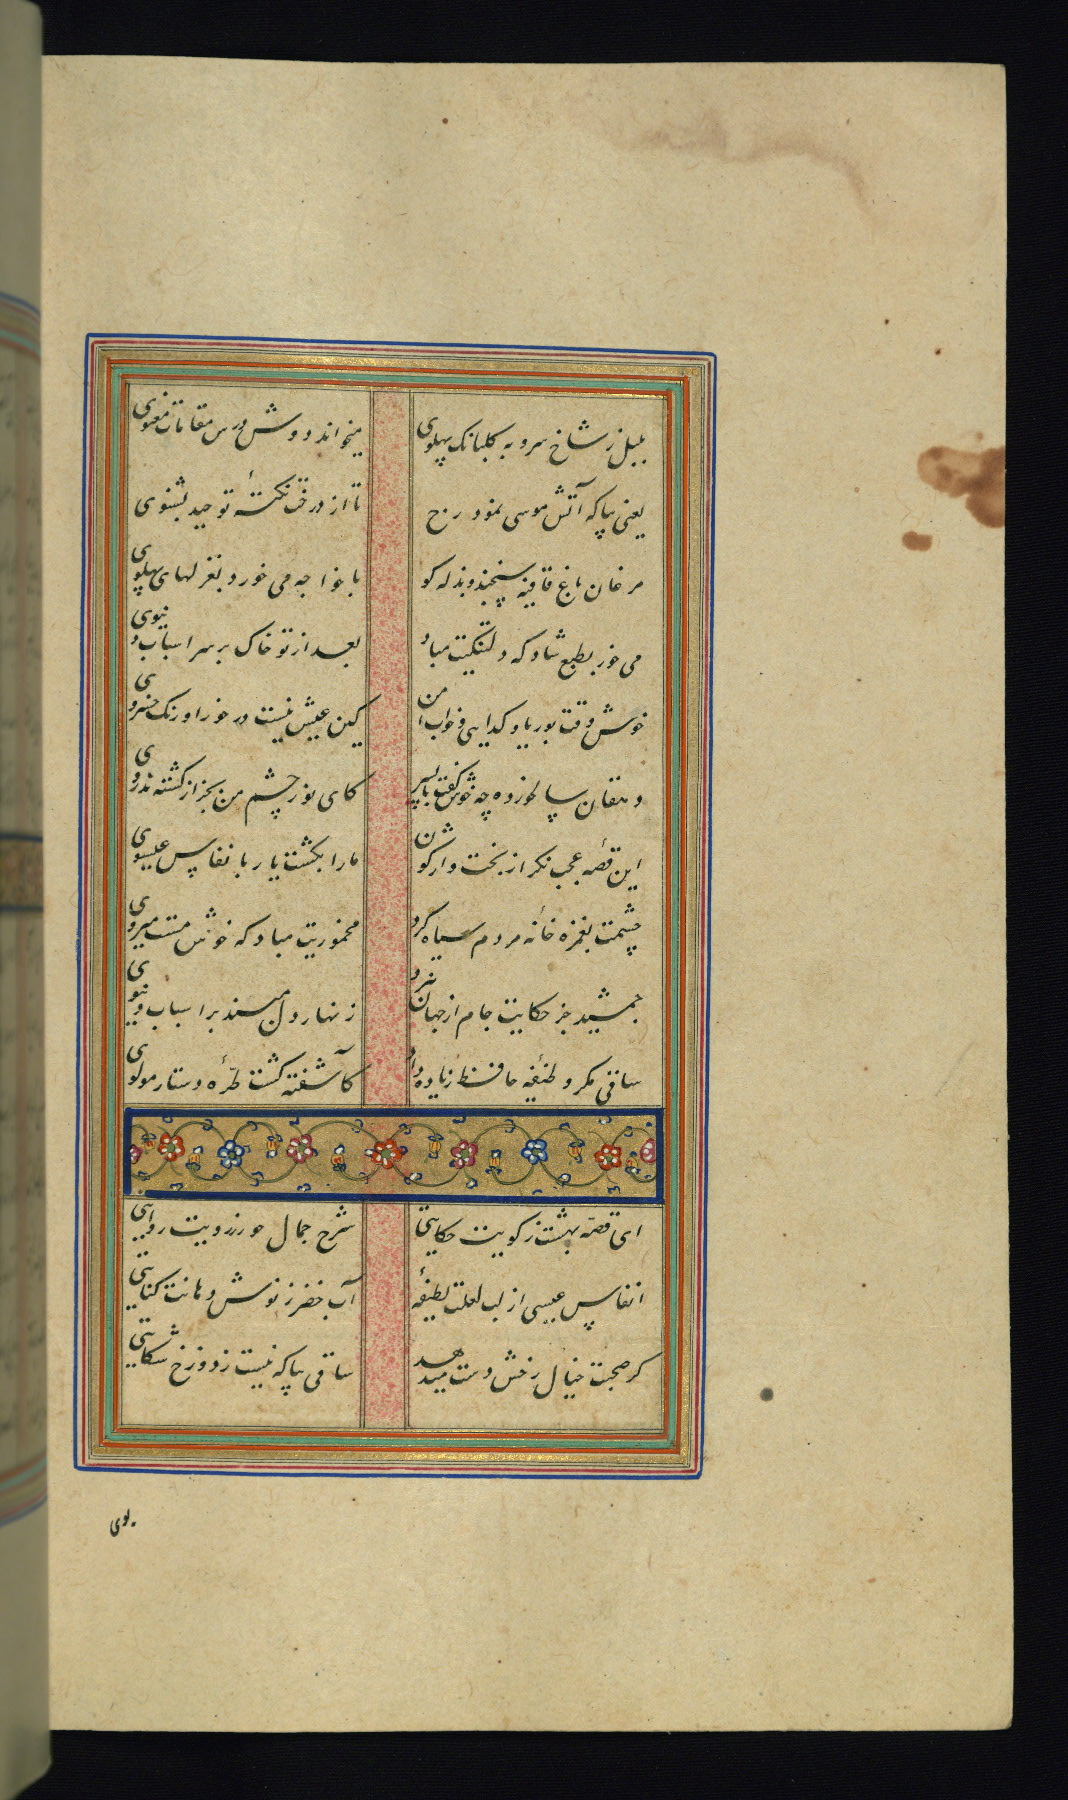 بلبل ز شاخ سرو به کلبانک پهلوی
میخواند دوش درس مقامات معنوی
یعنی بیا که آتش موسی نمود رخ
تا از درخت نکتهٔ توحید بشنوی
مرغان باغ قافیه سنجند و بذله کو
با خواجه می خورد بغزلهای پهلوی
می خور بطبع شاد که دلتنکیت مباد
بعد از تو خاک بر سر اسباب دنیوی
خوش وقت بوریا و کدایی و خواب امن
کین عیش نیست در خور اورنک خسروی
دهقان سالخورده چه خوش کفت با پسر
کای نور چشم من بجز از کشته ندروی
این قصه عجب نکر از بخت واژکون
ما را بکشت یار بانفاس عیسوی
چشمت بغمزه خانهٔ مردم سیاه کرد
مخموریت مباد که خوش مست میروی
جمشید جز حکایت جام از جهان نبرد
زنهار دل مبند بر اسباب دنیوی
ساقی مکر وظیفهٔ حافظ زیاده داد
کآشفته کشت طرهٔ دستار مولوی
ای قصه بهشت ز کویت حکایتی
شرح جمال حور ز رویت روایتی
انفاس عیسی از لب لعلت لطیفهٔ
آب خضر ز نوش دهانت کنایتی
کر صحبت خیال رخش دست میدهد
ساقی بیا که نیست ز دوزخ شکایتی
بوی